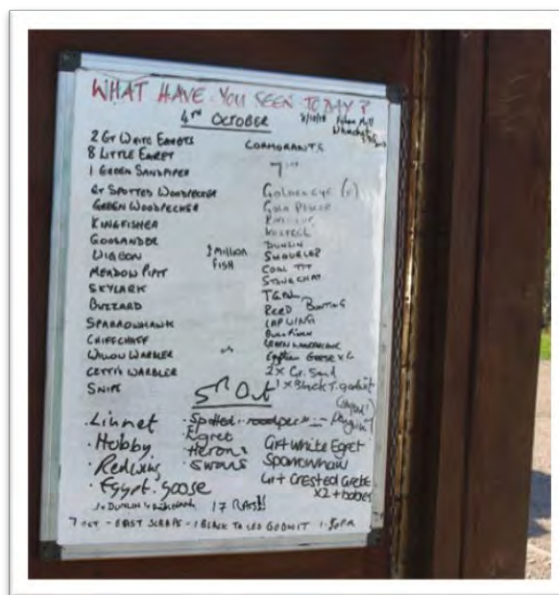 WHAT HAVE YOU SEEN TODAY?
4TH OCTOBER
2 GT WHITE EGRETS
8 LITTLE EGRET
1 GREEN SANDPIPER
GT SPOTTED WOODPECKER
GREEN WOODPECKER
KINGFISHER
GOOSANDER
WIGEON
MEADOW PIPIT
SKYLARK
BUZZARD
SPARROWHAWK
CHIFFCHAFF
WILLOW WARBLER
CETTI'S WARBLER
SNIPE
2 MILLION
FISH
CORMORANTS
GOLDENEYE
KESTREL
DUNLIN
SHOVELER
COAL TIT
STONECHAT
REED BUNTING
LAPWING
Egyptian Goose x 2
2 x Gr. Sand
1 x Black T. godwit
5TH Oct
· Linnet
· Hobby
· Redwing
· Egypt. goose
· Spotted
Egret
· Heron
· Swans
Grt white Egret
Sparrowhaw
Grt Crested Grebe
x2 + babies
17 RATS!!
7 OCT - EAST SCRAPE - 1 BLACK TAILED GODWIT 1.30PM